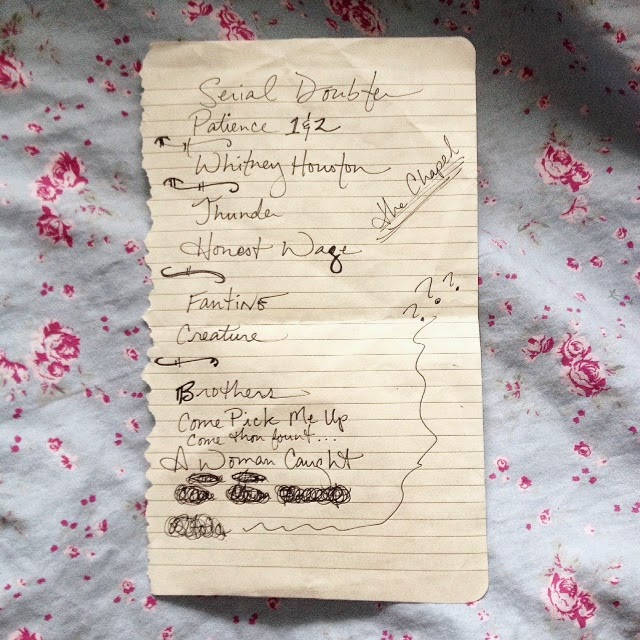 Serial Doubter
Patience 1 & 2
Whitney Houston
The Chapel
Thunder
Honest Wage
Fantine
? ? ?
Creature
Brothers
Come Pick Me Up
Come thou fount...
A Woman Caught